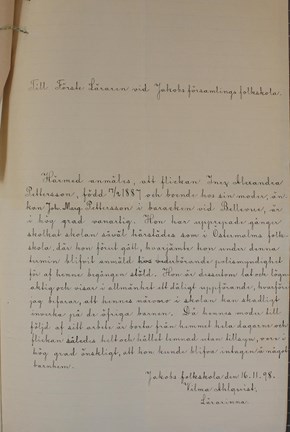 Till Förste Läraren vid Jakobs församlings folkskola.
Härmed anmäles, att flickan Inez Alexandra
Pettersson, född 1887 och boende hos sin moder, än-
kan Joh. Marg. Pettersson i baracken vid Bellevue, är
i hög grad vanartig. Hon har upprepade gånger
skolkat skolan såväl härstädes som i Östermalms folk-
skola, där hon förut gått, hvarjämte hon under denna
termin blifvit anmäld hos vederbörande polismyndighet
för af henne begången stöld. Hon är dessutom lat och lögn-
aktig och visar i allmänhet ett dåligt uppförande, hvarför
jag befarar, att hennes närvaro i skolan kan skadligt
inverka på de öfriga barnen. Då hennes moder till
följd af sitt arbete är borta från hemmet hela dagarne och
flickan således helt och hållet lemnad utan tillsyn, vore i
hög grad önskligt, att hon kunde blifva intagen å något
barnhem.
Jakobs folkskola den 16.11.98.
Wilma Ahlqvist.
Lärarinna.